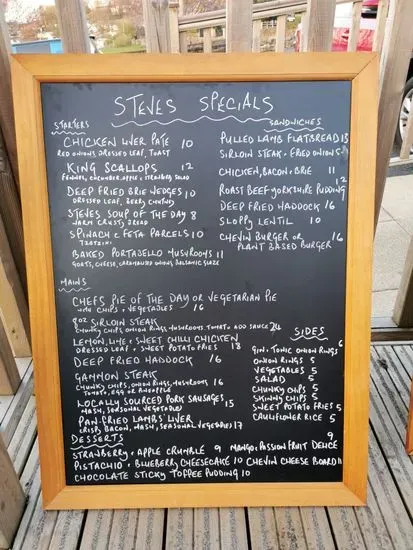 STEVES SPECIALS
STARTERS
CHICKEN LIVER PATE 10
RED ONIONS DRESSED LEAF, TOAST
KING SCALLOPS 12
FENNEL, CUCUMBER, APPLE + STRAWBERRY SALAD
DEEP FRIED BRIE WEDGES 10
DRESSED LEAF, BERRY CHUTNEY
STEVES SOUP OF THE DAY 8
WARM CRUSTY BREAD
SPINACH & FETA PARCELS 10
TZATZIKI
BAKED PORTABELLO MUSHROOMS 11
GOATS, CHEESE, CARAMALISED ONIONS, BALSAMIC GLAZE
SANDWICHES
PULLED LAMB FLATBREAD 13
SIRLOIN STEAK + FRIED ONIONS
CHICKEN, BACON & BRIE 11
12
ROAST BEEF YORKSHIRE PUDDING
DEEP FRIED HADDOCK 16
SLOPPY LENTIL 10
CHEVIN BURGER OR 16
PLANT BASED BURGER
MAINS
CHEFS PIE OF THE DAY OR VEGETARIAN PIE
WITH CHIPS + VEGETABLES 16
8OZ SIRLOIN STEAK
CHUNKY CHIPS, ONION RINGS, MUSHROOMS TOMATO ADD SAUCE 24
LEMON, LIME & SWEET CHILLI CHICKEN
DRESSED LEAF + SWEET POTATO FRIES 18
DEEP FRIED HADDOCK 16
GAMMON STEAK
CHUNKY CHIPS, ONION RINGS, MUSHROOMS 16
TOMATO, EGG OR PINEAPPLE
LOCALLY SOURCED PORK SAUSAGES 15
MASH, SEASONAL VEGETABLES
PAN FRIED LAMBS' LIVER
CRISPY BACON, MASH, SEASONAL VEGETABLES 17
SIDES
GIN + TONIC ONION RINGS 6
ONION RINGS 5
VEGETABLES 5
SALAD 5
CHUNKY CHIPS 5
SKINNY CHIPS 5
SWEET POTATO FRIES 5
CAULIFLOWER RICE 5
DESSERTS
STRAWBERRY + APPLE CRUMBLE 9 MANGO + PASSION FRUIT DELICE 9
PISTACHIO + BLUEBERRY CHEESECAKE 10 CHEVIN CHEESE BOARD 11
CHOCOLATE STICKY TOFFEE PUDDING 10